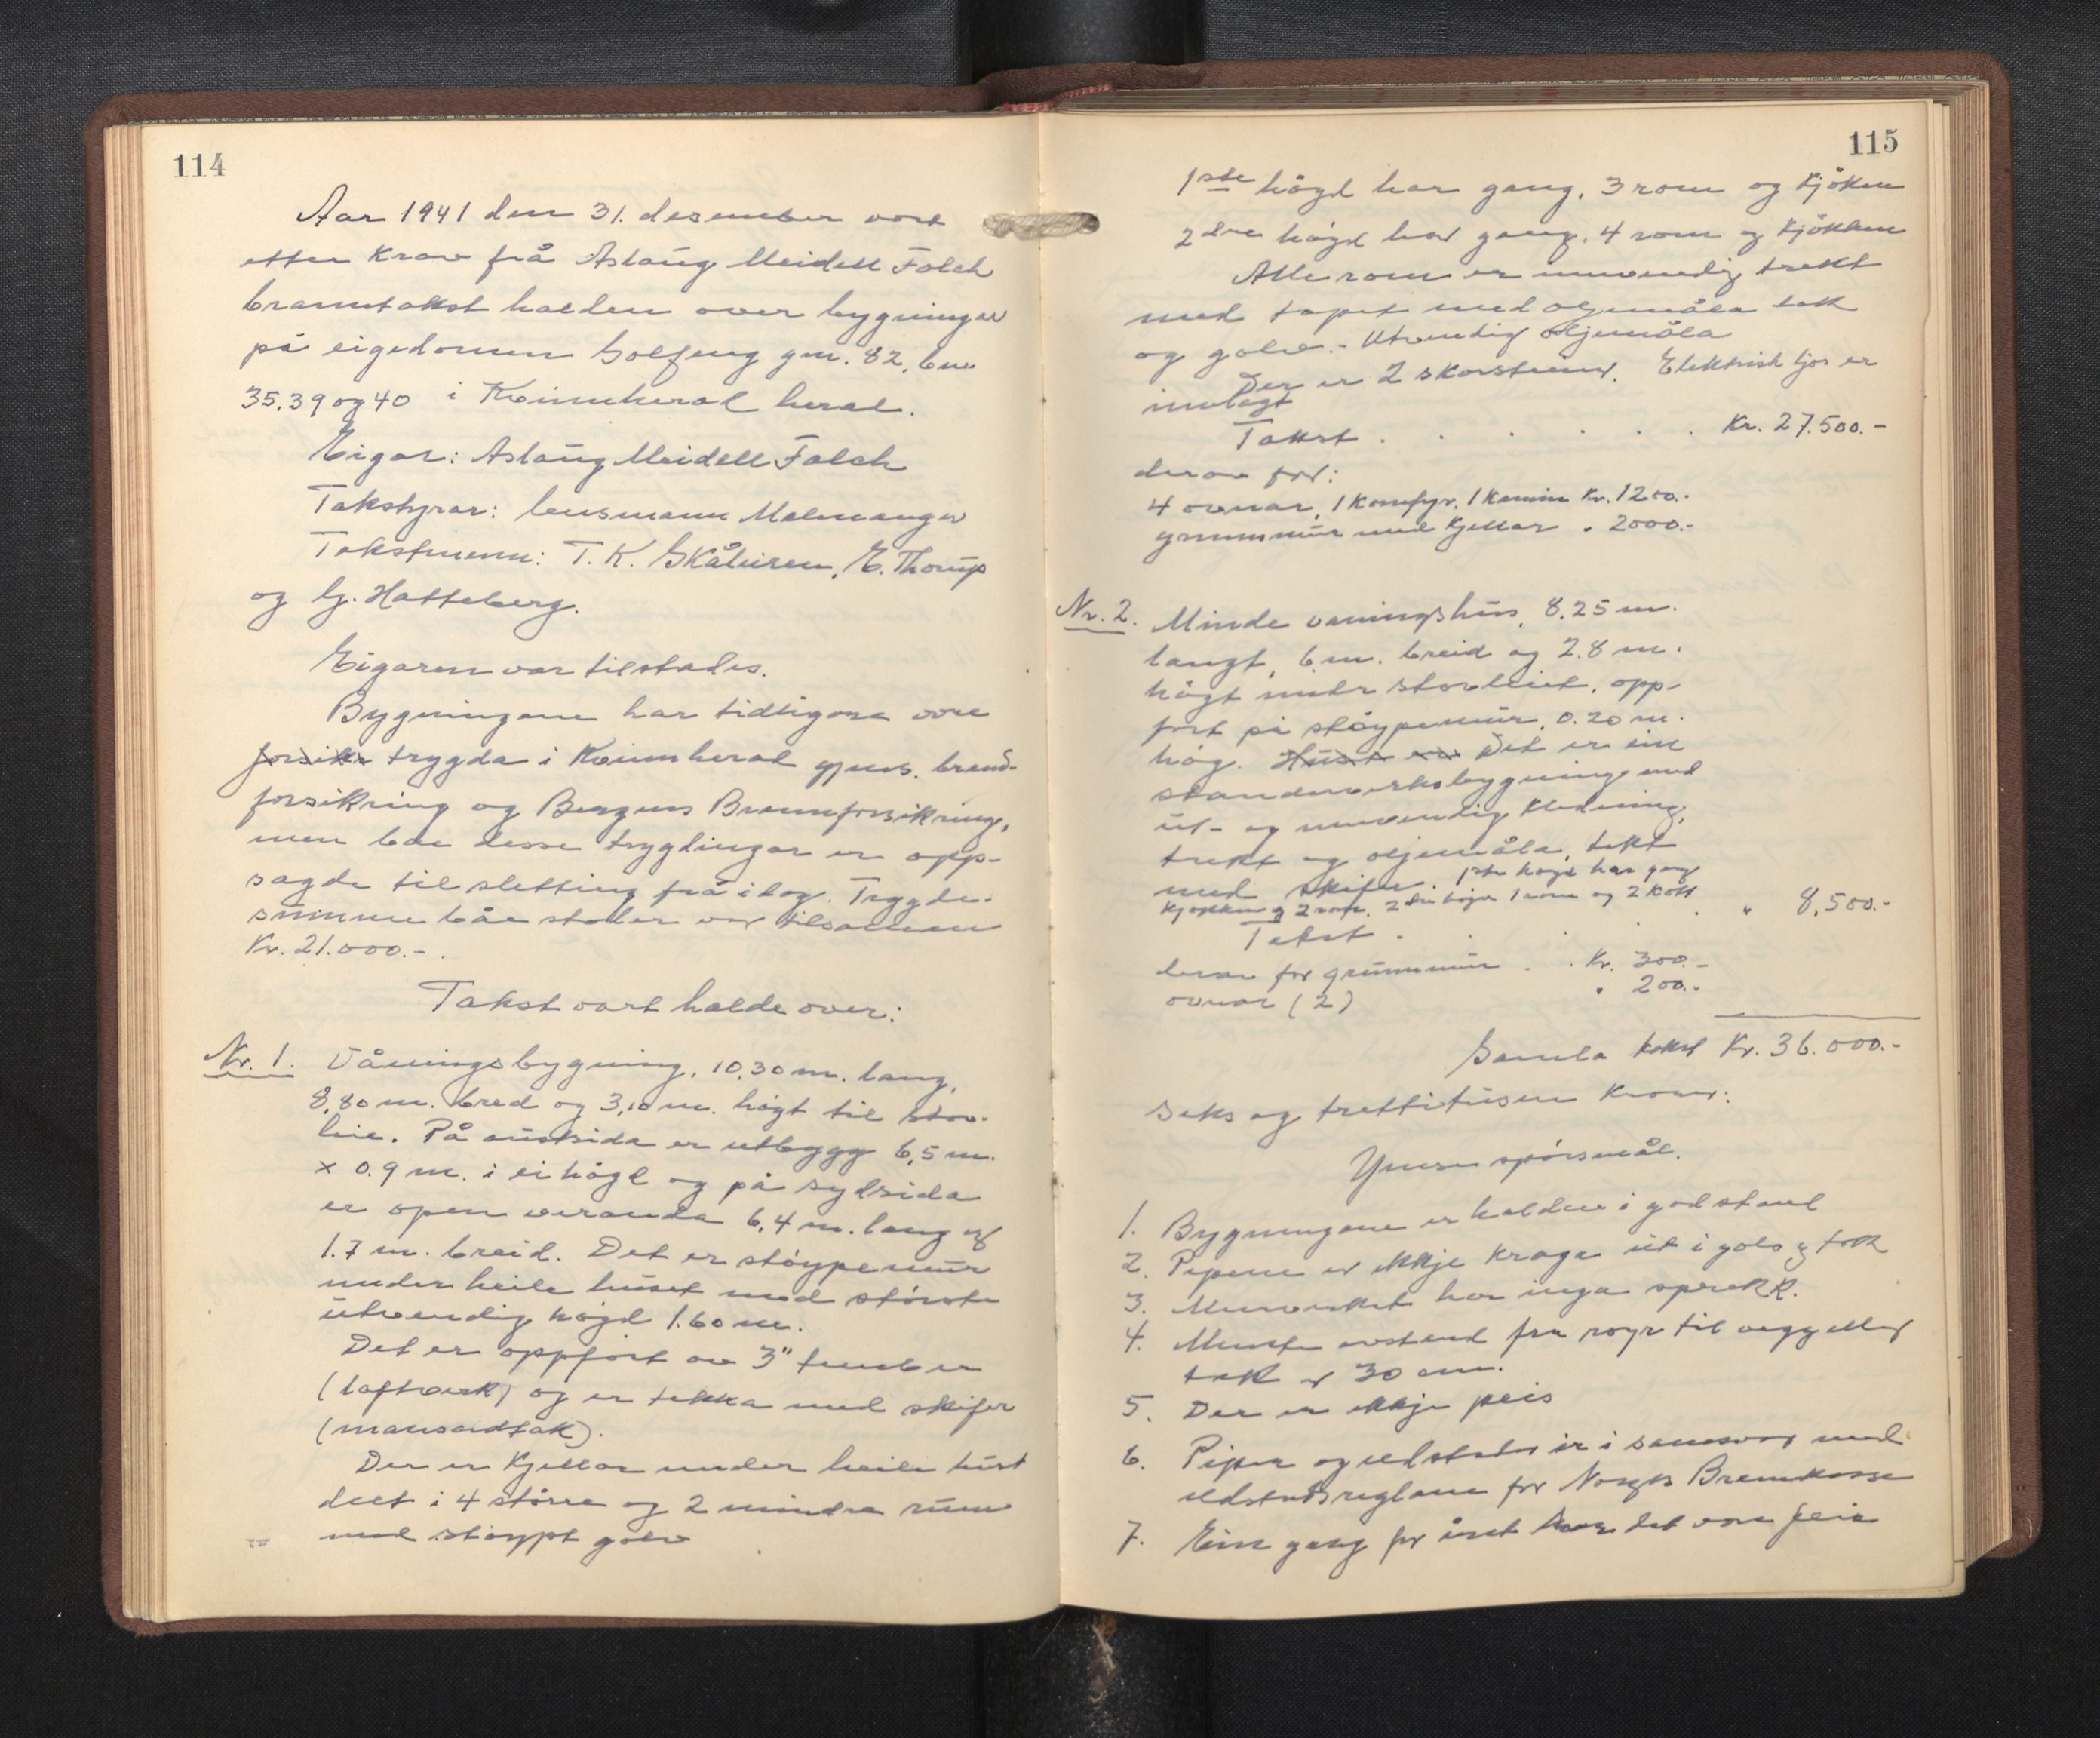 114
Aar 1941 den 31. desember vart
etter krav frå Aslaug Meidell Falch
branntakst halden over bygningar
på eigedomen Solfeng gnr. 82, bnr.
35, 39 og 40 i Kvinnherad herad.
Eigar: Aslaug Meidell Falch
Takstyrar: lensmann Malmanger
Takstmenn: T. K. Skålnisen, E. Thorup
og G. Hatteberg.
Eigaren var tilstades.
Bygningane har tidligare vore
forsikr trygda i Kvinnherad gjens. brand-
forsikring og Bergens Brannforsikring,
men båe desse trygdingar er opp-
sagde til sletting frå i dag. Trygde-
summen båe stader var tilsaman
Kr. 21.000.-.
Takst vart halde over:
Nr. 1. Våningsbygning, 10,30 m. lang,
8,80 m. bred og 3,10 m. høgt til stov-
leie. På austsida er utbygg 6,5 m.
x 0.9 m. i ei høgd og på sydsida
er open veranda 6,4 m. lang og
1.7 m. breid. Det er støypemur
under heile huset med største
utvendig høgd 1.60 m.
Det er oppført av 3" tømber
(laftverk) og er tekka med skifer
(mansardtak).
Der er kjellar under heile huset
delt i 4 større og 2 mindre rum
med støypt golv
115
1ste høgd har gang, 3 rom og kjøken
2dre høgd har gang, 4 rom og kjøkken
Alle rom er innvendig trekt
med tapet med oljemåla tak
og golv.- Utvendig oljemåla
Der er 2 skorsteinar. Elektrisk ljos er
innlagt
Takst . . . . . . Kr. 27.500.-
derav for:
4 ovnar, 1 komfyr, 1 kamin Kr. 1200.-
grunnmur med kjellar " 2000.-
Nr. 2. Mindre våningshus, 8,25 m.
langt, 6 m. breid og 2.8 m.
høgt under stovleiet, opp-
ført på støypemur, 0.20 m.
høg. Huset er Det er ein
standerverksbygning med
ut- og innvendig kledning,
trekt og oljemåla, tekt
med skifer. 1ste høgd har gang
kjøkken og 2 rom. 2dre høgd 1 rom og 2 kott
Takst . . . . " 8,500.-
derav for grunnmur . . Kr. 300.-
ovnar (2) " 200.-
Samla takst Kr. 36.000.-
Seks og trettitusen kroner:
Ymse spørsmål.
1. Bygningane er haldne i god stand
2. Pipene er ikkje kraga ut i golv og tak
3. Murverket har inga sprekk.
4. Minste avstand fra røyr til vegg eller
tak er 30 cm.
5. Der er ikkje peis
6. Piper og eldstader er i samsvar med
eldstadsreglane for Norges Brannkasse
7. Ein gang for året har det vore feia